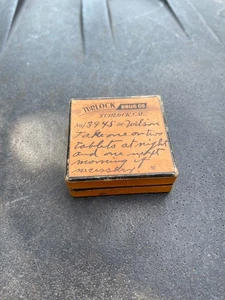 TURLOCK DRUG CO.
TURLOCK, CAL.
No. 13945 Dr. Wilson
Take one or two
tablets at night
and one next
morning if
necessary